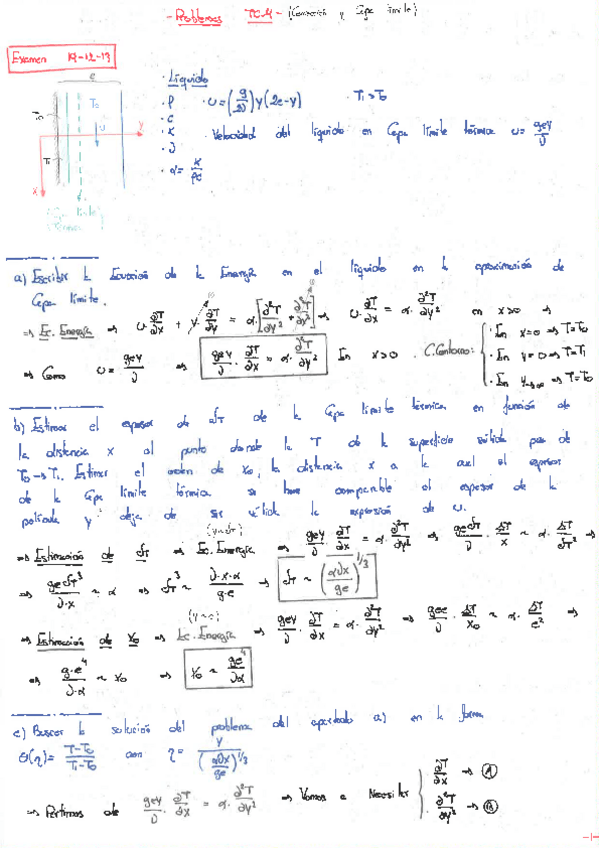 - Problemas TC.4 - (Convección y Capa límite)
Examen 19-12-13
e
· Líquido
T₀
· ρ
· υ = (g/2ν) y (2e-y)
· T₁ > T₀
· c
υ
y
· k
· Velocidad del líquido en Capa límite térmica υ = gey/ν
· ν
T₁
· α = k/ρc
x
a) Escribir la Ecuación de la Energía en el líquido en la aproximación de
Capa límite.
⇒ Ec. Energía ⇒ υ · ∂T/∂x + v · ∂T/∂y = α · [∂²T/∂y² + ∂²T/∂x²] ⇒ υ · ∂T/∂x = α · ∂²T/∂y² en x>0 ⇒
⇒ Como υ = gey/ν ⇒ gey/ν · ∂T/∂x = α · ∂²T/∂y² En x>0. C.Contorno:
· En x=0 ⇒ T=T₀
· En y=0 ⇒ T=T₁
· En y→∞ ⇒ T=T₀
b) Estimar el espesor de δT de la Capa límite térmica en función de
la distancia x al punto donde la T de la superficie sólida pasa de
T₀ → T₁. Estimar el orden de x₀, la distancia x a la cual el espesor
de la Capa límite térmica se hace comparable al espesor de la
película y deja de ser válida la expresión de υ.
(y~δT)
⇒ Estimación de δT ⇒ Ec. Energía ⇒ gey/ν · ∂T/∂x = α · ∂²T/∂y² ⇒ geδT/ν · ΔT/x ~ α · ΔT/δT² ⇒
⇒ geδT³/ν·x ~ α ⇒ δT³ ~ ν·x·α/g·e ⇒ δT ~ (ανx/ge)^1/3
(y~e)
⇒ Estimación de x₀ ⇒ Ec. Energía ⇒ gey/ν · ∂T/∂x = α · ∂²T/∂y² ⇒ gee/ν · ΔT/x₀ ~ α · ΔT/e² ⇒
⇒ g·e⁴/ν·α ~ x₀ ⇒ x₀ ~ ge⁴/να
c) Buscar la solución del problema del apartado a) en la forma
θ(η) = T-T₀/T₁-T₀ con η = y/(ανx/ge)^1/3
⇒ Partimos de gey/ν · ∂T/∂x = α · ∂²T/∂y² ⇒ Vamos a Necesitar
∂T/∂x → A
∂²T/∂y² → B
-1-